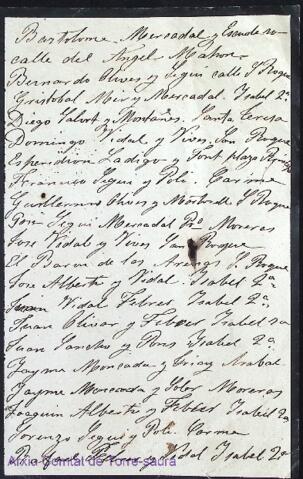 Bartolome Mercadal y Escudero
calle del Angel Mahon
Bernardo Olives y Seguí calle S Roque
Cristobal Mir y Mercadal Isabel 2ª
Diego Salort y Montañes. Santa Teresa
Domingo Vidal y Vives, San Roque
Ladico y Font plaza
Francisco Segui y Poli Carmen
Guillermo Olives y S Roque
Segui Mercadal Moreras
Jose Vidal y Vives San Roque
El Baron de las Arenas S. Roque
Jose Alberti y Vidal. Isabel 2ª
Juan Vidal Febrer Isabel 2ª.
Juan Olivar y Febrer Isabel 2a
Juan Sancho y Pons Isabel 2ª.
Jayme Moncada y Arabal
Jayme Moncada y Soler Moreras
Joaquin Alberti y Febrer Isabel 2ª
Lorenzo Segui y Poli Carmen
y Vidal Isabel 2ª
Arxiu Comtat de Torre-saura